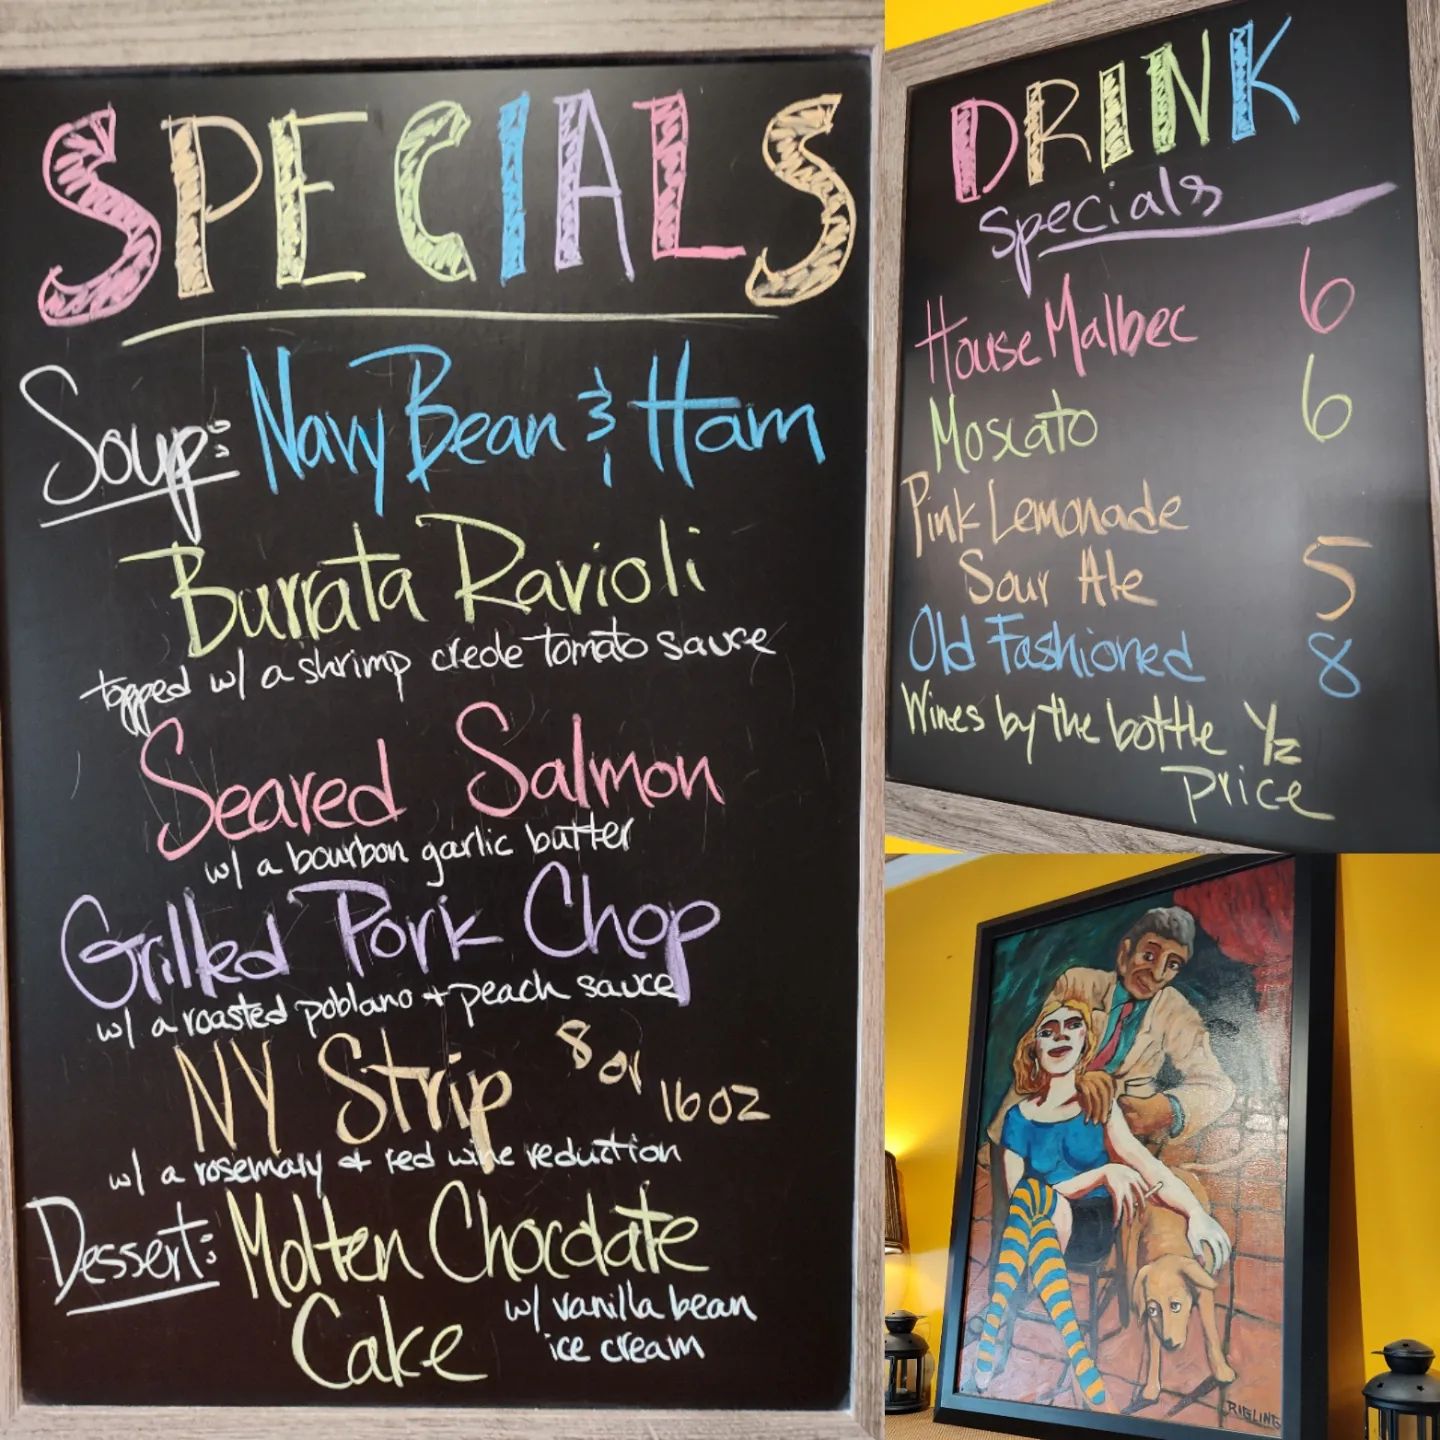 SPECIALS
Soup: Navy Bean & Ham
Burrata Ravioli
topped w/ a shrimp creole tomato sauce
Seared Salmon
w/ a bourbon garlic butter
Grilled Pork Chop
w/ a roasted poblano + peach sauce
NY Strip 8 or 16 oz
w/ a rosemary & red wine reduction
Dessert: Molten Chocolate
Cake w/ vanilla bean
ice cream
DRINK
Specials
House Malbec 6
Moscato 6
Pink Lemonade
Sour Ale 5
Old Fashioned 8
Wines by the bottle 1/2
price
RIGLING